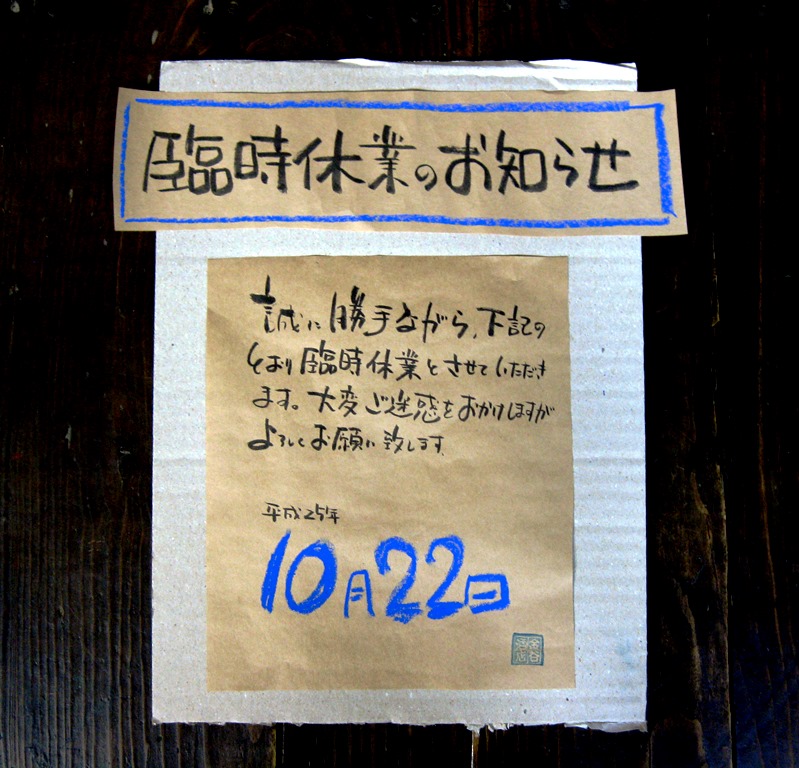 臨時休業のお知らせ
誠に勝手ながら、下記の
とおり臨時休業とさせていただき
ます。大変ご迷惑をおかけしますが
よろしくお願い致します
平成25年
10月22日